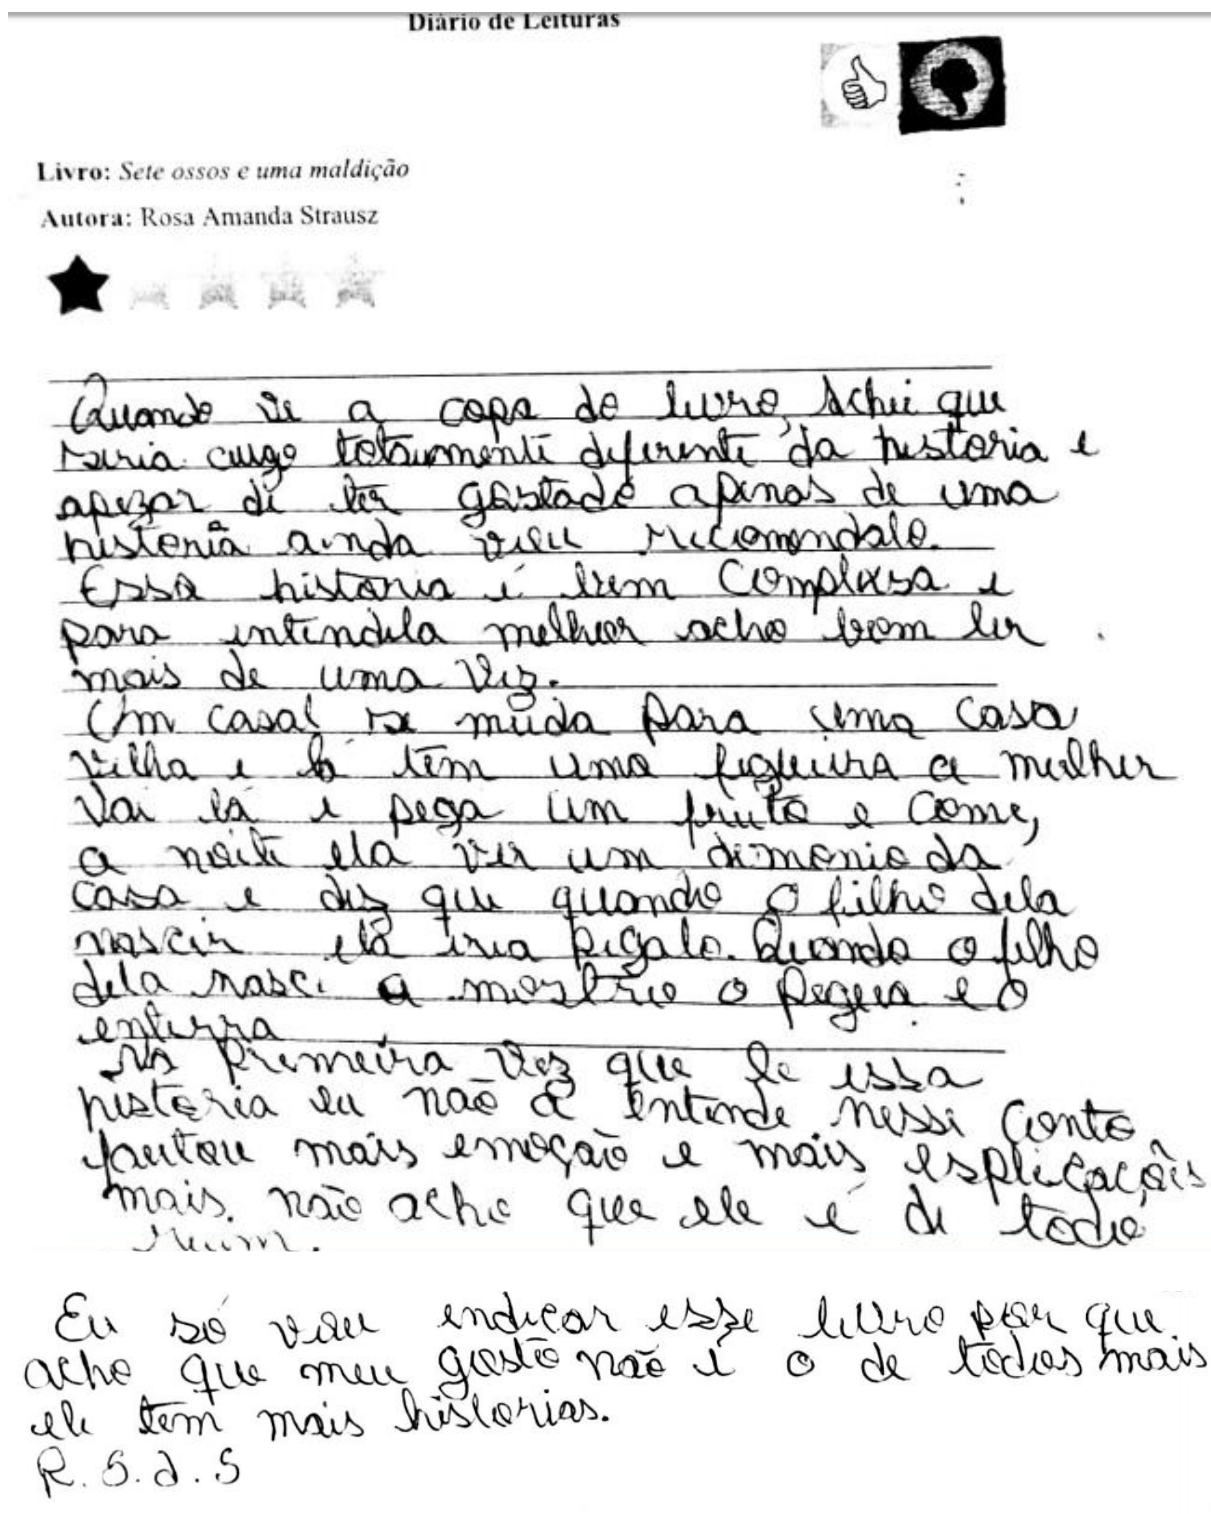 Diário de Leituras
Livro: Sete ossos e uma maldição
Autora: Rosa Amanda Strausz
Quando vi a capa do livro, Achei que
seria augo totaumente diferente da historia e
apezar di ter gostado apenas de uma
historia ainda vou recomendalo.
Essa historia é bem Complexsa e
para intendela melhor acho bom ler
mais de uma vez.
Um casal se muda para uma casa
velha e lá tem uma figueira a mulher
vai lá e pega um fruto e come,
a noite ela ver um demonio da
casa e diz que quando o filho dela
nascer ela iria pegalo. Quando o filho
dela nasce a mostro o pegou e o
enterra
Na primeira vez que le essa
historia eu não a entende nesse conto
fautou mais emoção e mais esplicaçõis
mais não acho que ele é di todo
ruim.
Eu só vou endicar esse livro por que
acho que meu gosto não é o de todos mais
ele tem mais historias.
R. S. d. S